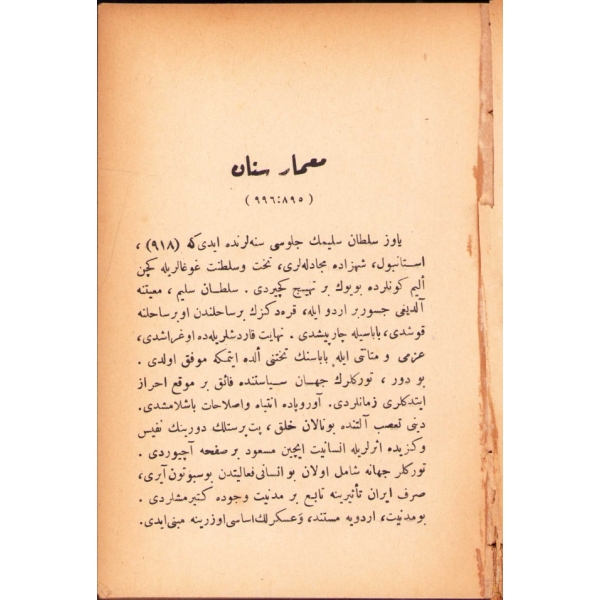 معمار سنان
( ٨٩٥ : ٩٩٦ )
ياوز سلطان سليمك جلوسى سنه‌لرنده ايدى كه (٩١٨) ،
استانبول، شهزاده مجادله‌لرى، تخت وسلطنت غوغالريله كچن
أليم كونلرده بويوك بر تهييج كچيردى . سلطان سليم ، معيتنه
آلديغى جسور بر اردو ايله، قره‌دكزك بر ساحلندن اوبر ساحلنه
قوشدى، باباسيله چارپيشدى . نهايت قاردشلريله‌ده اوغراشدى،
عزمى و متانتى ايله باباسنك تختنى ألده ايتمكه موفق اولدى .
بو دور ، توركلرك جهان سياستنده فائق بر موقع احراز
ايتدكلرى زمانلردى. آوروپاده انتباه واصلاحات باشلامشدى.
دينى تعصب آلتنده بونالان خلق ، پت‌پرستلك دورينك نفيس
وكزيده اثرلريله انسانيت ايچين مسعود بر صفحه آچيوردى .
توركلر جهانه شامل اولان بو انسانى فعاليتدن بوسبوتون آيرى،
صرف ايران تأثيرينه تابع بر مدنيت وجوده كتيرمشلردى .
بو مدنيت، اردويه مستند، وعسكرلك اساسى اوزرينه مبنى ايدى.